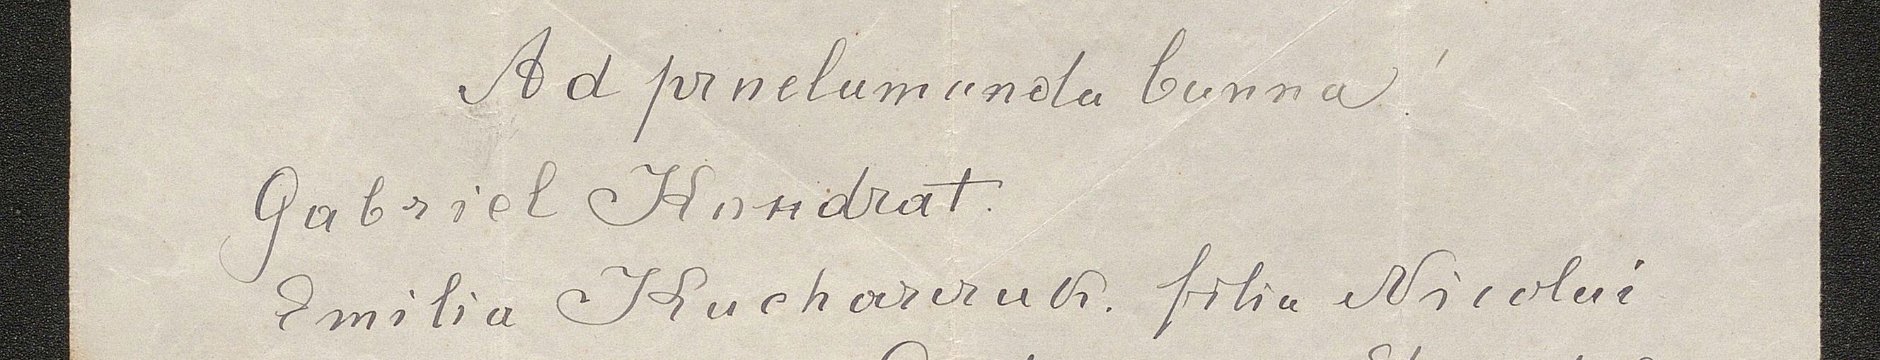 Ad pruelumanda banna!
Gabriel Kondrat.
Emilia Kucharczuk. filia Nicolai